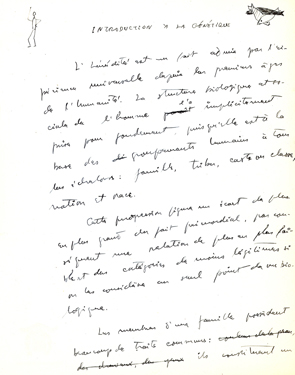 INTRODUCTION À LA GÉNÉTIQUE
L'hérédité est un fait admis par l'ex-
périence universelle depuis les premiers âges
de l'humanité. La structure biologique et so-
ciale de l'homme l'a implicitement
pris pour fondement, puisqu'elle est à la
base des groupements humains à tous
les échelons : famille, tribu, caste ou classe,
nation et race.
Cette progression figure un écart de plus
en plus grand du fait primordial, par con-
séquent une relation de plus en plus fai-
ble et des catégories de moins légitimes si
on les considère au seul point de vue bio-
logique.
Les membres d'une famille possèdent
beaucoup de traits communs :
ils constituent un